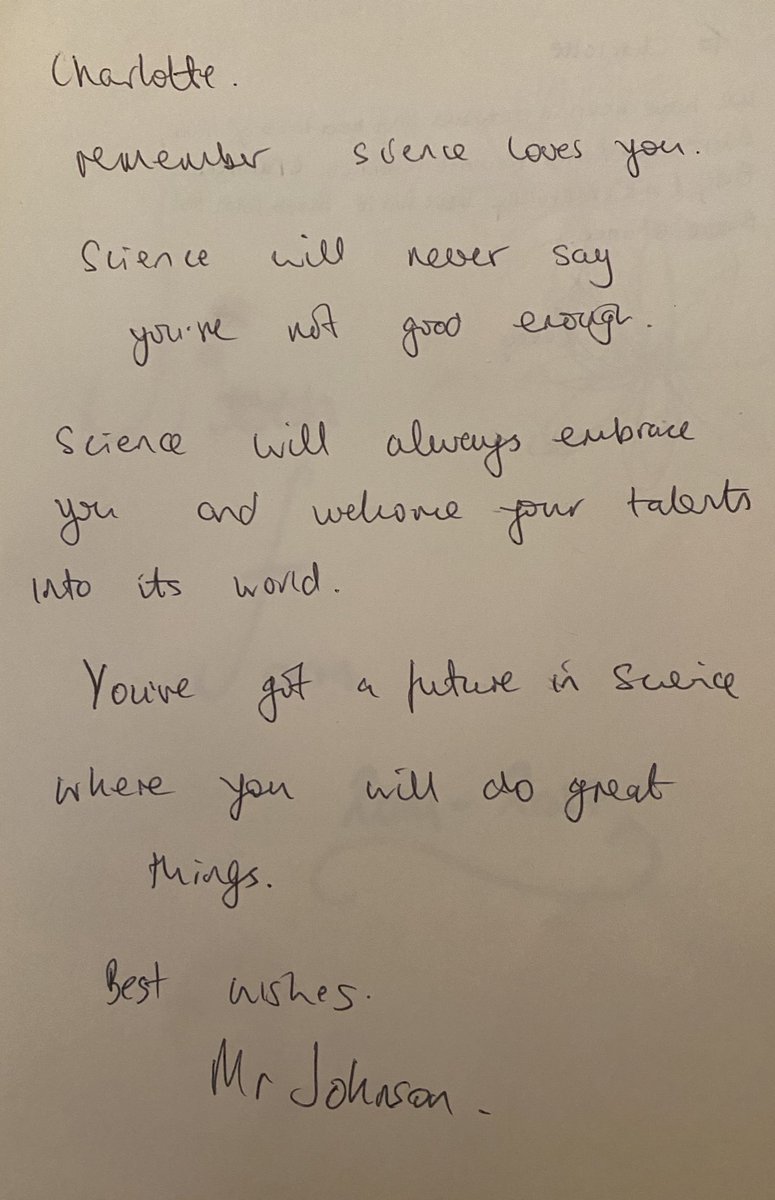 Charlotte.
remember science loves you.
Science will never say
you're not good enough.
Science will always embrace
you and welcome your talents
into its world.
You've got a future in science
where you will do great
things.
Best wishes.
Mr Johnson.